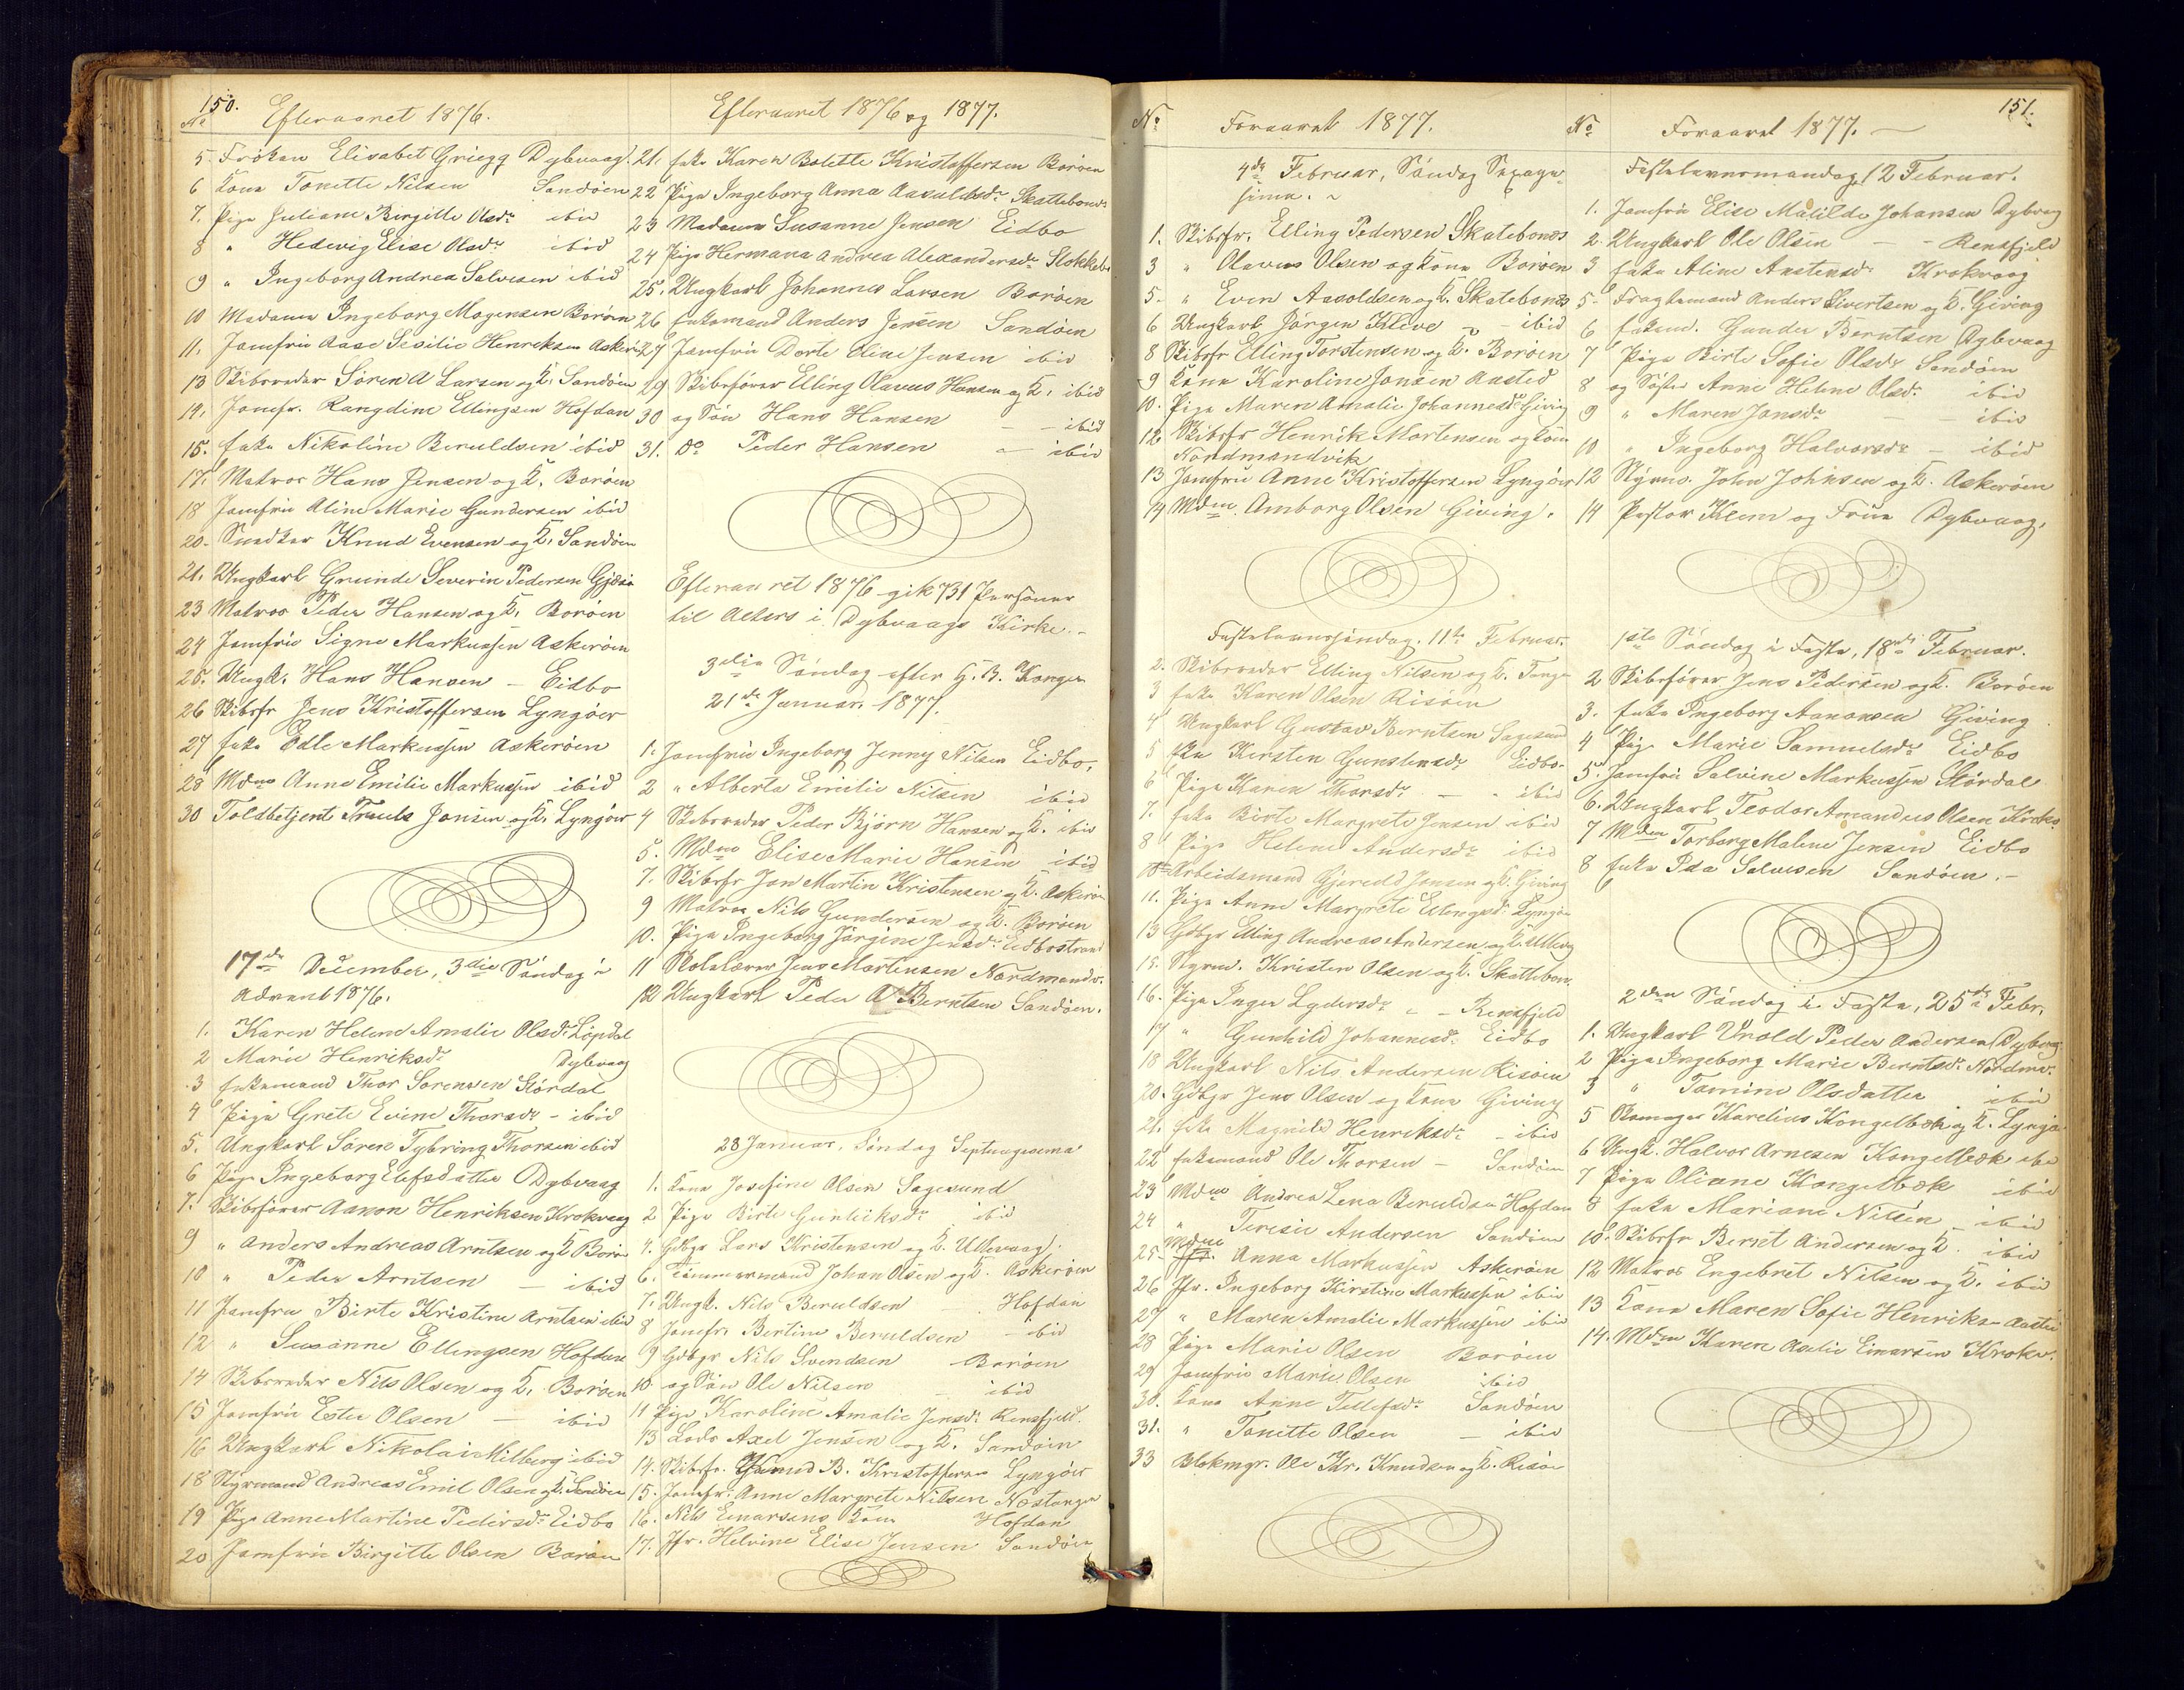 150.
No
Efteraaret 1876.
5. Frøken Elisabet Griegg Dybvaag.
6 Kona Tonette Nilsen Sandøen
7. Pige Juliane Birgitte Olsdr ibid
8 " Hedevig Elise Olsdr ibid
9 " Ingeborg Andrea Salvesen ibid
10 Madame Ingeborg Mogensen Borøen
11. Jomfru Aase Sesilie Henriksen Askerø
13 Skibsreder Søren A Larsen og K. Sandøen
14. Jomfr. Rangdine Ellingsen Hofdan
15. Enke Nikoline Beruldsen ibid
17. Matros Hans Jensen og K. Borøen
18 Jomfru Aline Marie Gundersen ibid
20. Snedker Knud Evensen og K. Sandøen
21. Ungkarl Grunde Severin Pedersen
23 Matros Peder Hansen og K. Borøen
24 Jomfru Signe Markussen Askerøen
25. Ungk. Hans Hansen – Eidbo
26 Skibsfr Jens Kristoffersen Lyngøer
27 Enke Edle Markussen Askerøen
28 Mdme Anne Emilie Markussen ibid
30 Toldbetjent Truuls Jonsen og K. Lyngøer
17de December, 3die Søndag i
Advent 1876.
1. Karen Helene Amalie Olsdr Løpdal
2 Marie Henriksdr Dybvaag
3 Enkemand Thor Sørensen Størdal
4 Pige Grete Evine Thorsdr – ibid
5. Ungkarl Søren Tybring Thorsen ibid
6 Pige Ingeborg Elefsdatter Dybvaag
7. Skibsfører Aanon Henriksen Krokvaag
9 " Anders Andreas Arntsen og K Borøe
10 " Peder Arntsen – ibid
11 Jomfru Birte Kristine Arntsen ibid
12 " Susanne Ellingsen Hofdan
14 Skibsreder Nils Olsen og K. Borøen
15 Jomfru Ester Olsen – ibid
16 Ungkarl Nikolai Milberg ibid
18 Styrmand Andreas Emil Olsen og K. Sandøen
19 Pige Anne Martine Pedersdr Eidbo
20 Jomfru Birgitte Olsen Borøen
Efteraaret 1876 og 1877.
21. Enke Karen Bolette Kristoffersen Borøen
22 Pige Ingeborg Anna Aasulvsdr Skattebones
23 Madame Susanne Jensen Eidbo
24 Pige Hermana Andrea Alexandersdr Stokkebo
25. Ungkarl Johannes Larsen Borøen
26 Enkemand Anders Jensen Sandøen
27 Jomfru Dorte Eline Jensen ibid
29 Skibsfører Elling Olavus Hansen og K. ibid
30 og Søn Hans Hansen – – ibid
31. Do Peder Hansen – ibid
Efteraaret 1876 gik 731 Personer
til Alters i Dybvaags Kirke. –
3die Søndag efter H. 3. Konger
21de Januar. 1877.
1. Jomfru Ingeborg Jenny Nilsen Eidbo.
2 " Alberta Emilie Nilsen ibid
4 Skibsreder Peder Bjørn Hansen og K. ibid
5. Mdme Elise Marie Hansen ibid
7. Skibsfr Jan Martin Kristensen og K. Askerøen
9 Matros Nils Gundersen og K. Borøen
10. Pige Ingeborg Jørgine Jensdr Eidbostrand
11 Skolelærer Jens Martensen Nordmandv.
12 Ungkarl Peder A Berntsen Sandøen.
28 Januar, Søndag Septuagesima
1. Kona Josefine Olsen Sagesund
2 Pige Birte Gunleiksdr ibid
4. Gdbgr Lars Kristensen og K. Ullevaag.
6. Tømmermand Johan Olsen og K. Askerøen
7. Ungk. Nils Beruldsen Hofdan
8 Jomfr. Bertine Beruldsen – ibid
9 Gdbgr Nils Svendsen Borøen
10 og Søn Ole Nilsen – ibid
11 Pige Karoline Amalie Jensdr Rensfjeld.
13 Lods Axel Jensen og K. Sandøen
14. Skibsfr. Knud B. Kristoffersen Lyngøer
15. Jomfr. Anne Margrete Nilsen Næstangen
16. Nils Einarsens Kona Hofdan
17. Jfr. Helvine Elise Jensen Sandøen
No
Foraaret 1877.
4de Februar, Søndag Sexage-
sima. –
1. Skibsfr. Elling Pedersen Skatebones
3 " Olavus Olsen og Kona Borøen
5 " Even Aasoldsen og K. Skatebones
6 Ungkarl Jørgen Klive – – ibid
8 Skibsfr Elling Torstensen og K. Borøen
9 Kona Karoline Jonsen Aasted
10. Pige Maren Amalie Johannesdr Giving
12 Skibsfr Henrik Mortensen og Kone
Nordmandvik
13 Jomfru Anne Kristoffersen Lyngøer
14 Mdme Amborg Olsen Giving.
Fastelavnssøndag. 11te Februar.
2. Skibsreder Elling Nilsen og K. Tange
3 Enke Karen Olsen Risøen
4 Ungkarl Gustav Berntsen Sagesund
5 Enke Kirsten Gunstensdr Eidbo
6 Pige Karen Thorsdr – – ibid
7. Enke Birte Margrete Jensen ibid
8 Pige Helene Andersdr ibid
10 Arbeidsmand Gjeredd Jensen og K. Giving
11. Pige Anne Margrete Ellingsdr Lyngøer
13 Gdbgr Elling Andreas Andersen og K. Ullevg
15. Styrm. Kristen Olsen og K. Skattebon.
16. Pige Inger Lydersdr – – Rensfjeld
17 " Gunhild Johannesdr Eidbo
18 Ungkarl Nils Andersen Risøen
20. Gdbgr Jens Olsen og Kona Giving
21. Enke Magnild Henriksdr – ibid
22 Enkemand Ole Thorsen – Sandøen
23 Mdme Andrea Lena Beruldsen Hofdan
24 " Teresie Andersen Sandøen
25. Mdme Anna Markussen Askerøen
26 Jfr. Ingeborg Kirstine Markussen ibid
27 " Maren Amalie Markussen ibid
28 Pige Marie Olsen Borøen
29 Jomfru Marie Olsen ibid
30. Kona Anne Tellefsdr Sandøen
31. " Tonette Olsen – ibid
33 Blokmgr. Ole Kr. Knudsen og K. Risøe
151.
No
Foraaret 1877. –
Fastelavnsmandag, 12 Februar.
1. Jomfru Elise Matilde Johansen Dybvag
2. Ungkarl Ole Olsen – – Rensfjeld
3 Enke Aline Anstensdr Krokvaag
5 Fragtemand Anders Sivertsen og K. Giving
6 Enkem. Gunder Berntsen Dybvaag
7 Pige Birte Sofie Olsdr Sandøen
8 og Søster Anne Helene Olsdr ibid
9 " Maren Jansdr – ibid
10 " Ingeborg Halvorsdr – ibid
12 Styrm. John Johnsen og K. Askerøen
14 Pastor Klem og Frue Dybvaag.
1ste Søndag i Faste, 18de Februar.
2 Skibsfører Jens Pedersen og K. Borøen
3. Enke Ingeborg Aanonsen Giving
4 Pige Marie Samuelsdr Eidbo
5. Jomfru Salvine Markussen Størdal
6. Ungkarl Teodor Amandus Olsen
7 Mdme Torborg Malene Jensen Eidbo
8 Enke Ida Salvesen Sandøen. –
2den Søndag i Faste, 25de Febr.
1. Ungkarl Unold Peder Andersen Dybvag
2 Pige Ingeborg Marie Berntsdr Nordmv.
3 " Tomine Olsdatter ibid
5 Skomager Karelius Kongelbæk og K. Lyngø.
6 Ungk. Halvor Arnesen Kongelbæk ibd
7 Pige Oliane Kongelbæk ibid
8 Enke Mariane Nilsen – ibid
10. Skibsfr Bernt Andersen og K. ibid
12 Matros Engebret Nilsen og K. ibid
13 Kona Maren Sofie Henriksen Aasted
14. Mdme Karen Aselie Einarsen Krokv.